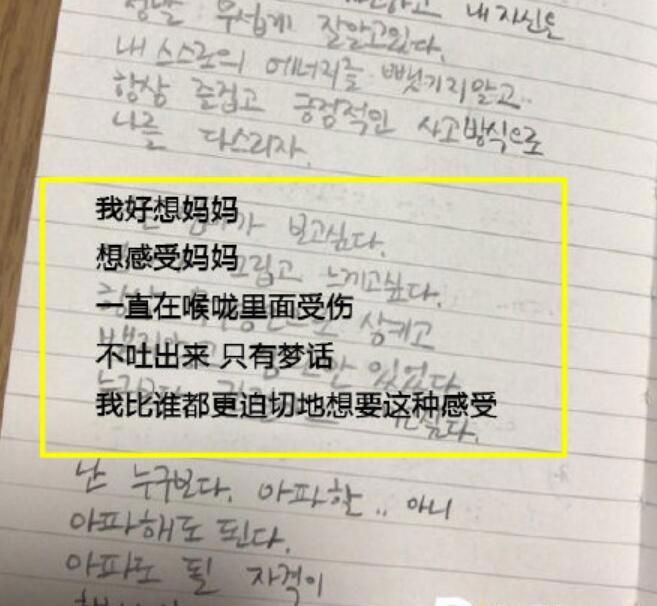 내 자신은
정말 무섭게 잘알고있다.
내 스스로의 에너지를 뺏기지않고..
항상 즐겁고 긍정적인 사고방식으로
나를 다스리자.
我好想妈妈
보고싶다.
想感受妈妈
그립고 느끼고싶다.
一直在喉咙里面受伤
삼키고
不吐出来 只有梦话
있었다
我比谁都更迫切地想要这种感受
싶다.
난 누구보다. 아파할.. 아니
아파해도 된다.
아파도 될 자격이